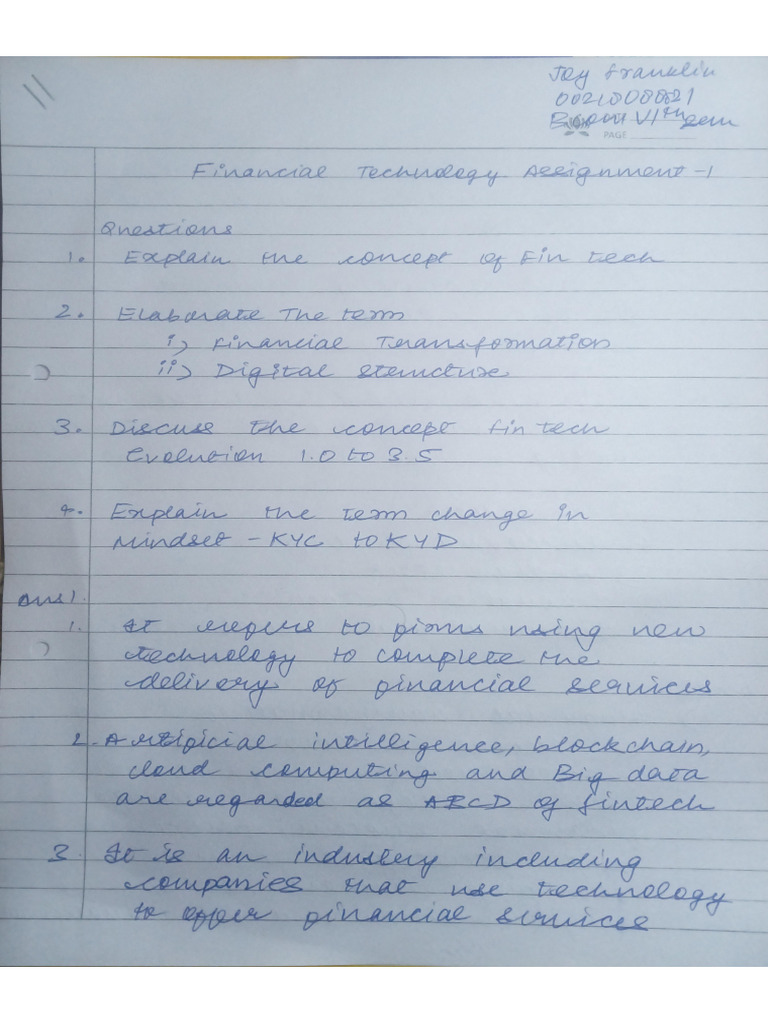 Joy Franklin
00210008821
VIth sem
PAGE
Financial Technology Assignment -1
Questions
1. Explain the concept of Fin tech
2. Elaborate The term
i) Financial Transformation
ii) Digital Structure
3. Discuss the concept fin tech
Evolution 1.0 to 3.5
4. Explain the term change in
Mindset - KYC to KYD
Ans 1.
1. It refers to firms using new
technology to complete the
delivery of financial services
2. Artificial intilligence, blockchain,
cloud computing and Big data
are regarded as ABCD of fintech
3. It is an industry including
companies that use technology
to offer financial services